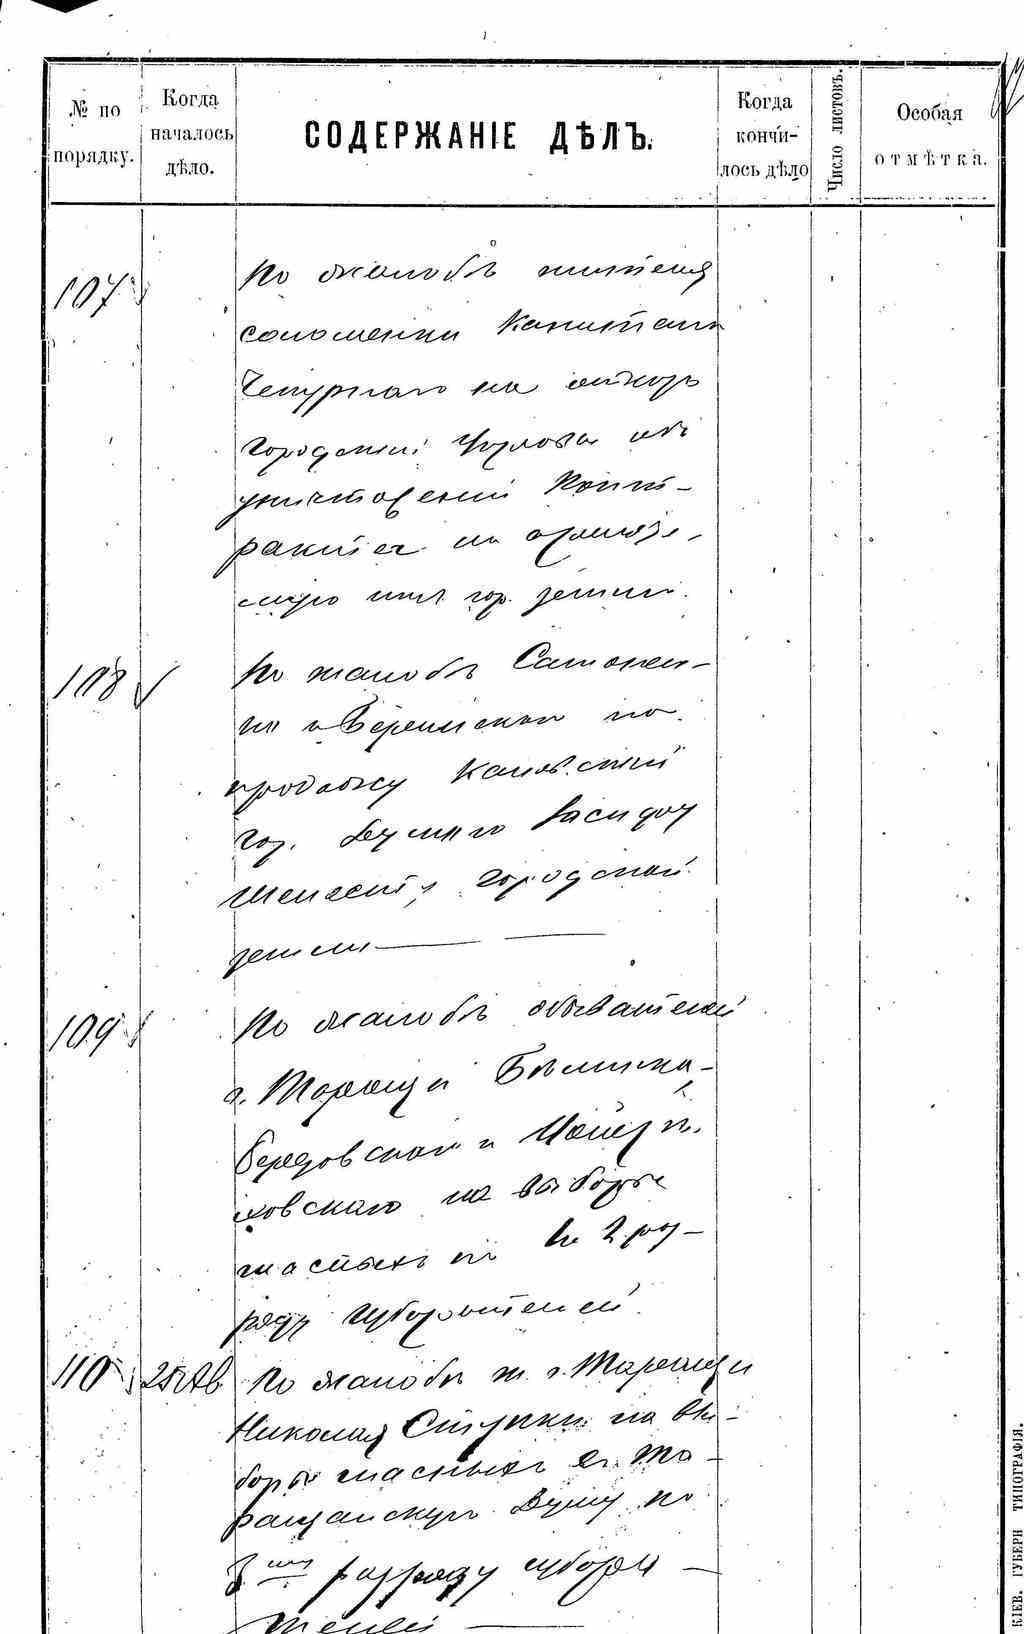 № по порядку.
Когда началось дѣло.
СОДЕРЖАНІЕ ДѢЛЪ.
Когда кончи-лось дѣло
Число листовъ.
Особая отмѣтка.
107
По жалобѣ жителя
соломенки Капитана
Чепурнаго на
Городской Управы объ
уничтоженіи Конт-
ракта на
гор. земли.
108
По жалобѣ Самонен-
ко и на
продажу Каневской
гор. Думою
городской
земли
109
По жалобѣ обывателей
г. Таращи Бѣлина-
Бержовскаго и
ховскаго на выборы
гласныхъ по 2 раз-
ряду избирателей.
110 25 Авг
По жалобѣ ж. г. Таращи
Николая Ступки на вы-
боры гласныхъ въ Та-
ращанскую Думу по
3му разряду избира-
телей
КІЕВ. ГУБЕРН ТИПОГРАФІЯ.